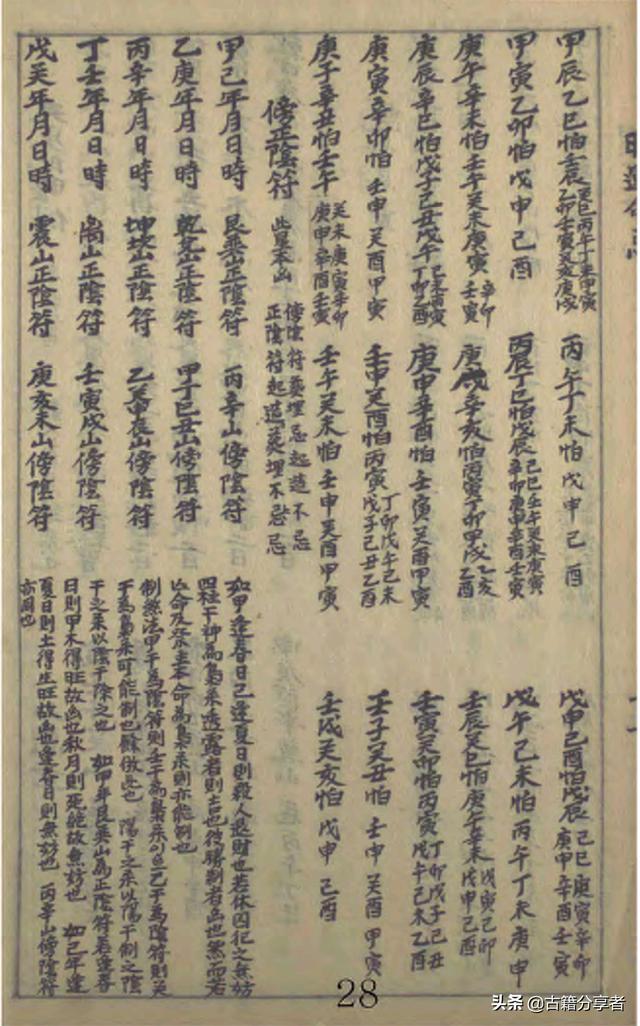 甲辰乙巳怕壬辰癸巳丙午丁未甲寅乙卯壬寅癸亥庚戌
丙午丁未怕戊申己酉
戊申己酉怕戊辰己巳庚寅辛卯庚申辛酉壬寅
甲寅乙卯怕戊申己酉
丙辰丁巳怕戊辰己巳壬午癸未庚寅辛卯庚申辛酉壬寅
戊午己未怕丙午丁未庚申
庚午辛未怕壬午癸未庚寅辛卯壬寅
庚戌辛亥怕丙寅丁卯甲戌乙亥乙酉
壬辰癸巳怕庚午辛未戊寅己卯戊申己酉
庚辰辛巳怕戊子己丑戊午己未丙寅丁卯乙酉
庚申辛酉怕壬寅癸酉甲寅
壬寅癸卯怕丙寅丁卯戊子己丑戊午己未乙酉
庚寅辛卯怕壬申癸酉甲寅
壬申癸酉怕丙寅丁卯戊午己未戊子己丑乙酉
壬子癸丑怕壬申癸酉甲寅
庚子辛丑怕壬午癸未庚寅辛卯庚申辛酉壬寅
壬午癸未怕壬申癸酉甲寅
壬戌癸亥怕戊申己酉
傍正陰符
傍陰符葬埋忌起造不忌
正陰符起造葬埋不忌
甲己年月日時 艮巽山正陰符 丙辛山傍陰符
乙庚年月日時 乾兌山正陰符 甲丁巳丑山傍陰符
丙辛年月日時 坤坎山正陰符 乙癸申辰山傍陰符
丁壬年月日時 离山正陰符 壬寅戌山傍陰符
戊癸年月日時 震山正陰符 庚亥未山傍陰符
如甲逢春日己逢夏日則殺人退財也若休囚犯之無妨
四柱干神為梟來透露者則吉也後勝制者凶也然而若
凶命及祭主本命為梟來則亦能制也
制煞法甲干為陰符則壬干為梟來乙干為陰符則癸
干為梟來可能制也餘倣此也 陽干之來以陽干制之陰
干之來以陰干除之也 如甲年艮巽山為正陰符若逢春
日則甲木得旺故凶也秋月則死絕故無妨也 如己年逢
夏日則土得生旺故凶也逢春日則無妨也 丙辛山傍陰符
亦同也
28
头条 @古籍分享者